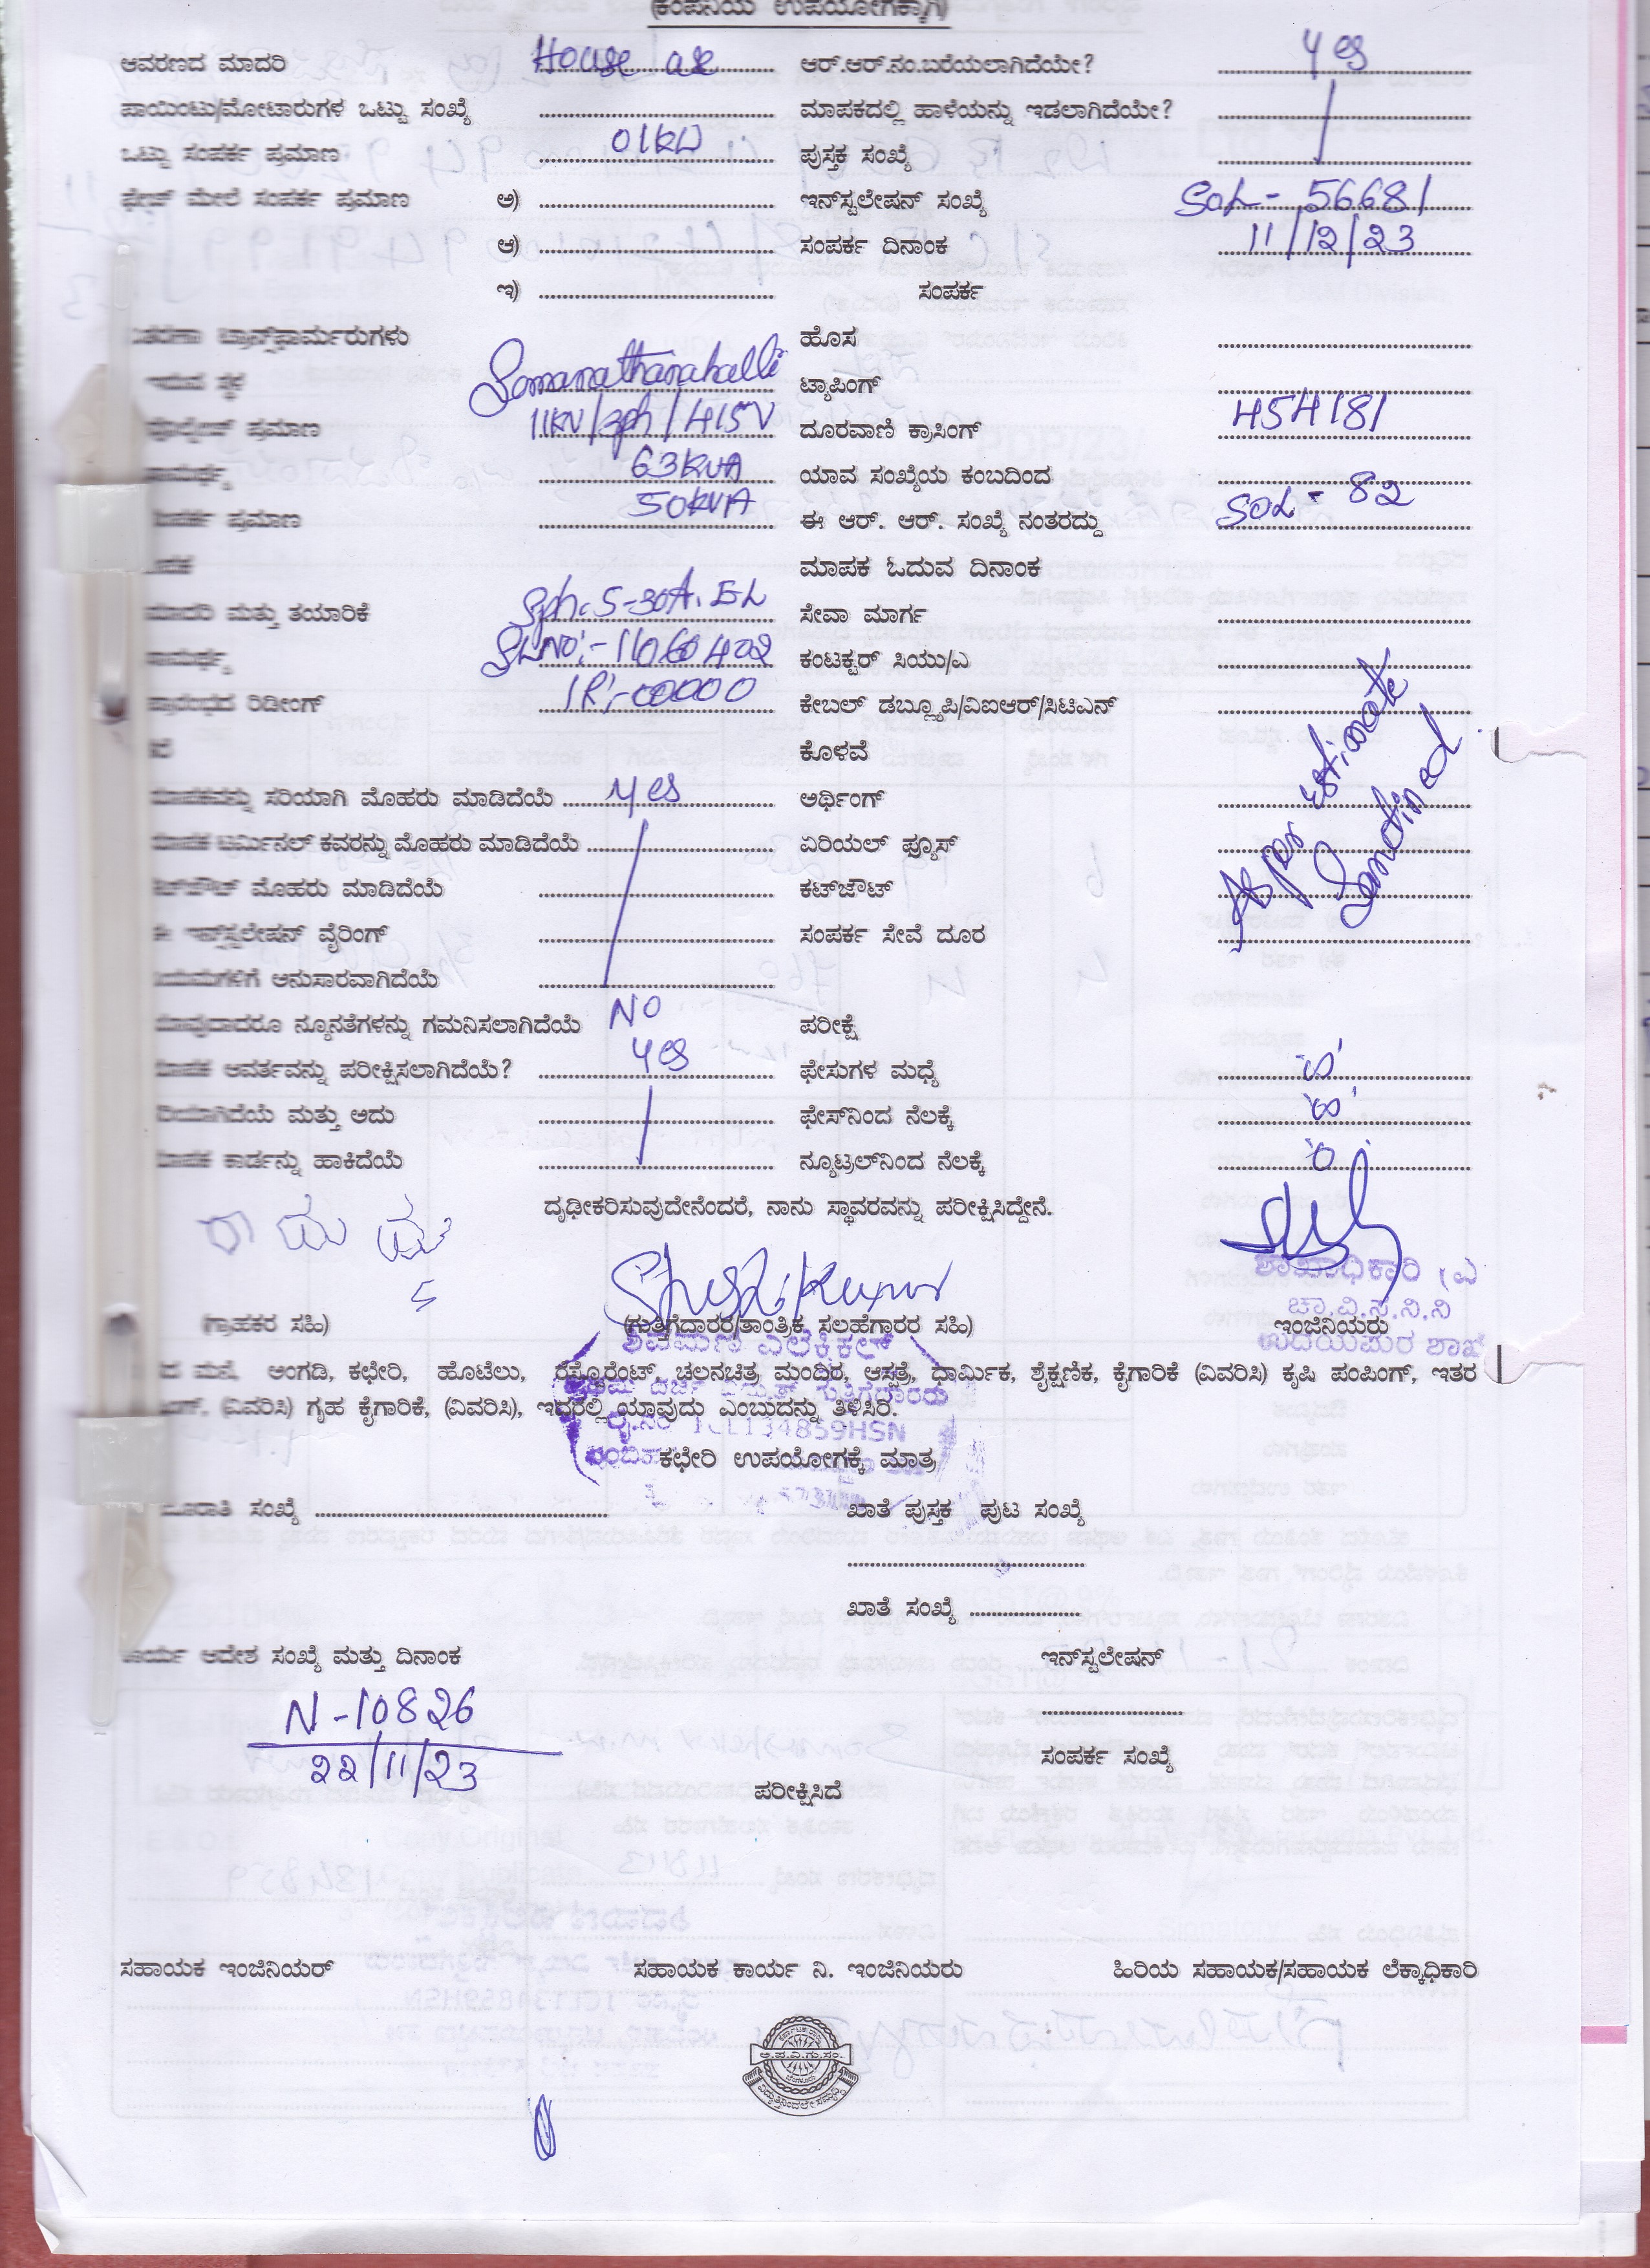 (ಕಂಪನಿಯ ಉಪಯೋಗಕ್ಕಾಗಿ)
ಆವರಣದ ಮಾದರಿ House ... ಆರ್.ಆರ್.ನಂ.ಬರೆಯಲಾಗಿದೆಯೇ? yes
ಪಾಯಿಂಟು/ಮೋಟಾರುಗಳ ಒಟ್ಟು ಸಂಖ್ಯೆ ಮಾಪಕದಲ್ಲಿ ಹಾಳೆಯನ್ನು ಇಡಲಾಗಿದೆಯೇ?
ಒಟ್ಟು ಸಂಪರ್ಕ ಪ್ರಮಾಣ 01KW ಪುಸ್ತಕ ಸಂಖ್ಯೆ
ಫೇಜ್ ಮೇಲೆ ಸಂಪರ್ಕ ಪ್ರಮಾಣ ಅ) ಇನ್‌ಸ್ಟಲೇಷನ್ ಸಂಖ್ಯೆ SOL- 56681
ಆ) ಸಂಪರ್ಕ ದಿನಾಂಕ 11/12/23
ಇ) ಸಂಪರ್ಕ
ಟ್ರಾನ್ಸ್‌ಫಾರ್ಮರುಗಳು ಹೊಸ
ಸ್ಥಳ Somanathanahalli ಟ್ಯಾಪಿಂಗ್
ಪ್ರಮಾಣ 11KV/3ph/415V ದೂರವಾಣಿ ಕ್ರಾಸಿಂಗ್ 454181
63KVA ಯಾವ ಸಂಖ್ಯೆಯ ಕಂಬದಿಂದ
ಪ್ರಮಾಣ 50KVA ಈ ಆರ್. ಆರ್. ಸಂಖ್ಯೆ ನಂತರದ್ದು SOL - 82
ಮಾಪಕ ಓದುವ ದಿನಾಂಕ
ಮಾದರಿ ಮತ್ತು ತಯಾರಿಕೆ Sph. 5-30A. EL ಸೇವಾ ಮಾರ್ಗ
SLNO:- 16060402 ಕಂಟಕ್ಟರ್ ಸಿಯು/ಎ
ಪ್ರಾರಂಭದ ರಿಡೀಂಗ್ IR:-00000 ಕೇಬಲ್ ಡಬ್ಲ್ಯೂಪಿ/ವಿಐಆರ್/ಸಿಟಿಎನ್
ಕೊಳವೆ
ಮಾಪಕವನ್ನು ಸರಿಯಾಗಿ ಮೊಹರು ಮಾಡಿದೆಯೆ yes ಅರ್ಥಿಂಗ್
As per estimate
Sanctined
ಮಾಪಕ ಟರ್ಮಿನಲ್ ಕವರನ್ನು ಮೊಹರು ಮಾಡಿದೆಯೆ ಏರಿಯಲ್ ಫ್ಯೂಸ್
ಕಟ್‌ಔಟ್ ಮೊಹರು ಮಾಡಿದೆಯೆ ಕಟ್‌ಔಟ್
ಈ ಇನ್‌ಸ್ಟಲೇಷನ್ ವೈರಿಂಗ್ ಸಂಪರ್ಕ ಸೇವೆ ದೂರ
ನಿಯಮಗಳಿಗೆ ಅನುಸಾರವಾಗಿದೆಯೆ
ಯಾವುದಾದರೂ ನ್ಯೂನತೆಗಳನ್ನು ಗಮನಿಸಲಾಗಿದೆಯೆ NO ಪರೀಕ್ಷೆ
ಮಾಪಕ ಆವರ್ತವನ್ನು ಪರೀಕ್ಷಿಸಲಾಗಿದೆಯೆ? yes ಫೇಸುಗಳ ಮಧ್ಯೆ
ಸರಿಯಾಗಿದೆಯೆ ಮತ್ತು ಅದು ಫೇಸ್‌ನಿಂದ ನೆಲಕ್ಕೆ
ಮಾಪಕ ಕಾರ್ಡನ್ನು ಹಾಕಿದೆಯೆ ನ್ಯೂಟ್ರಲ್‌ನಿಂದ ನೆಲಕ್ಕೆ
ದೃಢೀಕರಿಸುವುದೇನೆಂದರೆ, ನಾನು ಸ್ಥಾವರವನ್ನು ಪರೀಕ್ಷಿಸಿದ್ದೇನೆ.
ಶಾಖಾಧಿಕಾರಿ (ವಿ
ಚಾ.ವಿ.ಸ.ನಿ.ನಿ
(ಗ್ರಾಹಕರ ಸಹಿ) (ಗುತ್ತಿಗೆದಾರರ/ತಾಂತ್ರಿಕ ಸಲಹೆಗಾರರ ಸಹಿ) ಇಂಜಿನಿಯರು
ಉದಯಪುರ ಶಾಖೆ
ಎಲೆಕ್ಟ್ರಿಕಲ್
ಮನೆ, ಅಂಗಡಿ, ಕಛೇರಿ, ಹೊಟೆಲು, ರೆಸ್ಟೊರೆಂಟ್, ಚಲನಚಿತ್ರ ಮಂದಿರ, ಆಸ್ಪತ್ರೆ, ಧಾರ್ಮಿಕ, ಶೈಕ್ಷಣಿಕ, ಕೈಗಾರಿಕೆ (ವಿವರಿಸಿ) ಕೃಷಿ ಪಂಪಿಂಗ್, ಇತರ
(ವಿವರಿಸಿ) ಗೃಹ ಕೈಗಾರಿಕೆ, (ವಿವರಿಸಿ), ಇದರಲ್ಲಿ ಯಾವುದು ಎಂಬುದನ್ನು ತಿಳಿಸಿರಿ.
1CL134859HSN
ಕಛೇರಿ ಉಪಯೋಗಕ್ಕೆ ಮಾತ್ರ
ಸಂಖ್ಯೆ ಖಾತೆ ಪುಸ್ತಕ ಪುಟ ಸಂಖ್ಯೆ
ಖಾತೆ ಸಂಖ್ಯೆ
ಕಾರ್ಯ ಆದೇಶ ಸಂಖ್ಯೆ ಮತ್ತು ದಿನಾಂಕ ಇನ್‌ಸ್ಟಲೇಷನ್
N-10826
22/11/23
ಸಂಪರ್ಕ ಸಂಖ್ಯೆ
ಪರೀಕ್ಷಿಸಿದೆ
ಸಹಾಯಕ ಇಂಜಿನಿಯರ್ ಸಹಾಯಕ ಕಾರ್ಯ ನಿ. ಇಂಜಿನಿಯರು ಹಿರಿಯ ಸಹಾಯಕ/ಸಹಾಯಕ ಲೆಕ್ಕಾಧಿಕಾರಿ